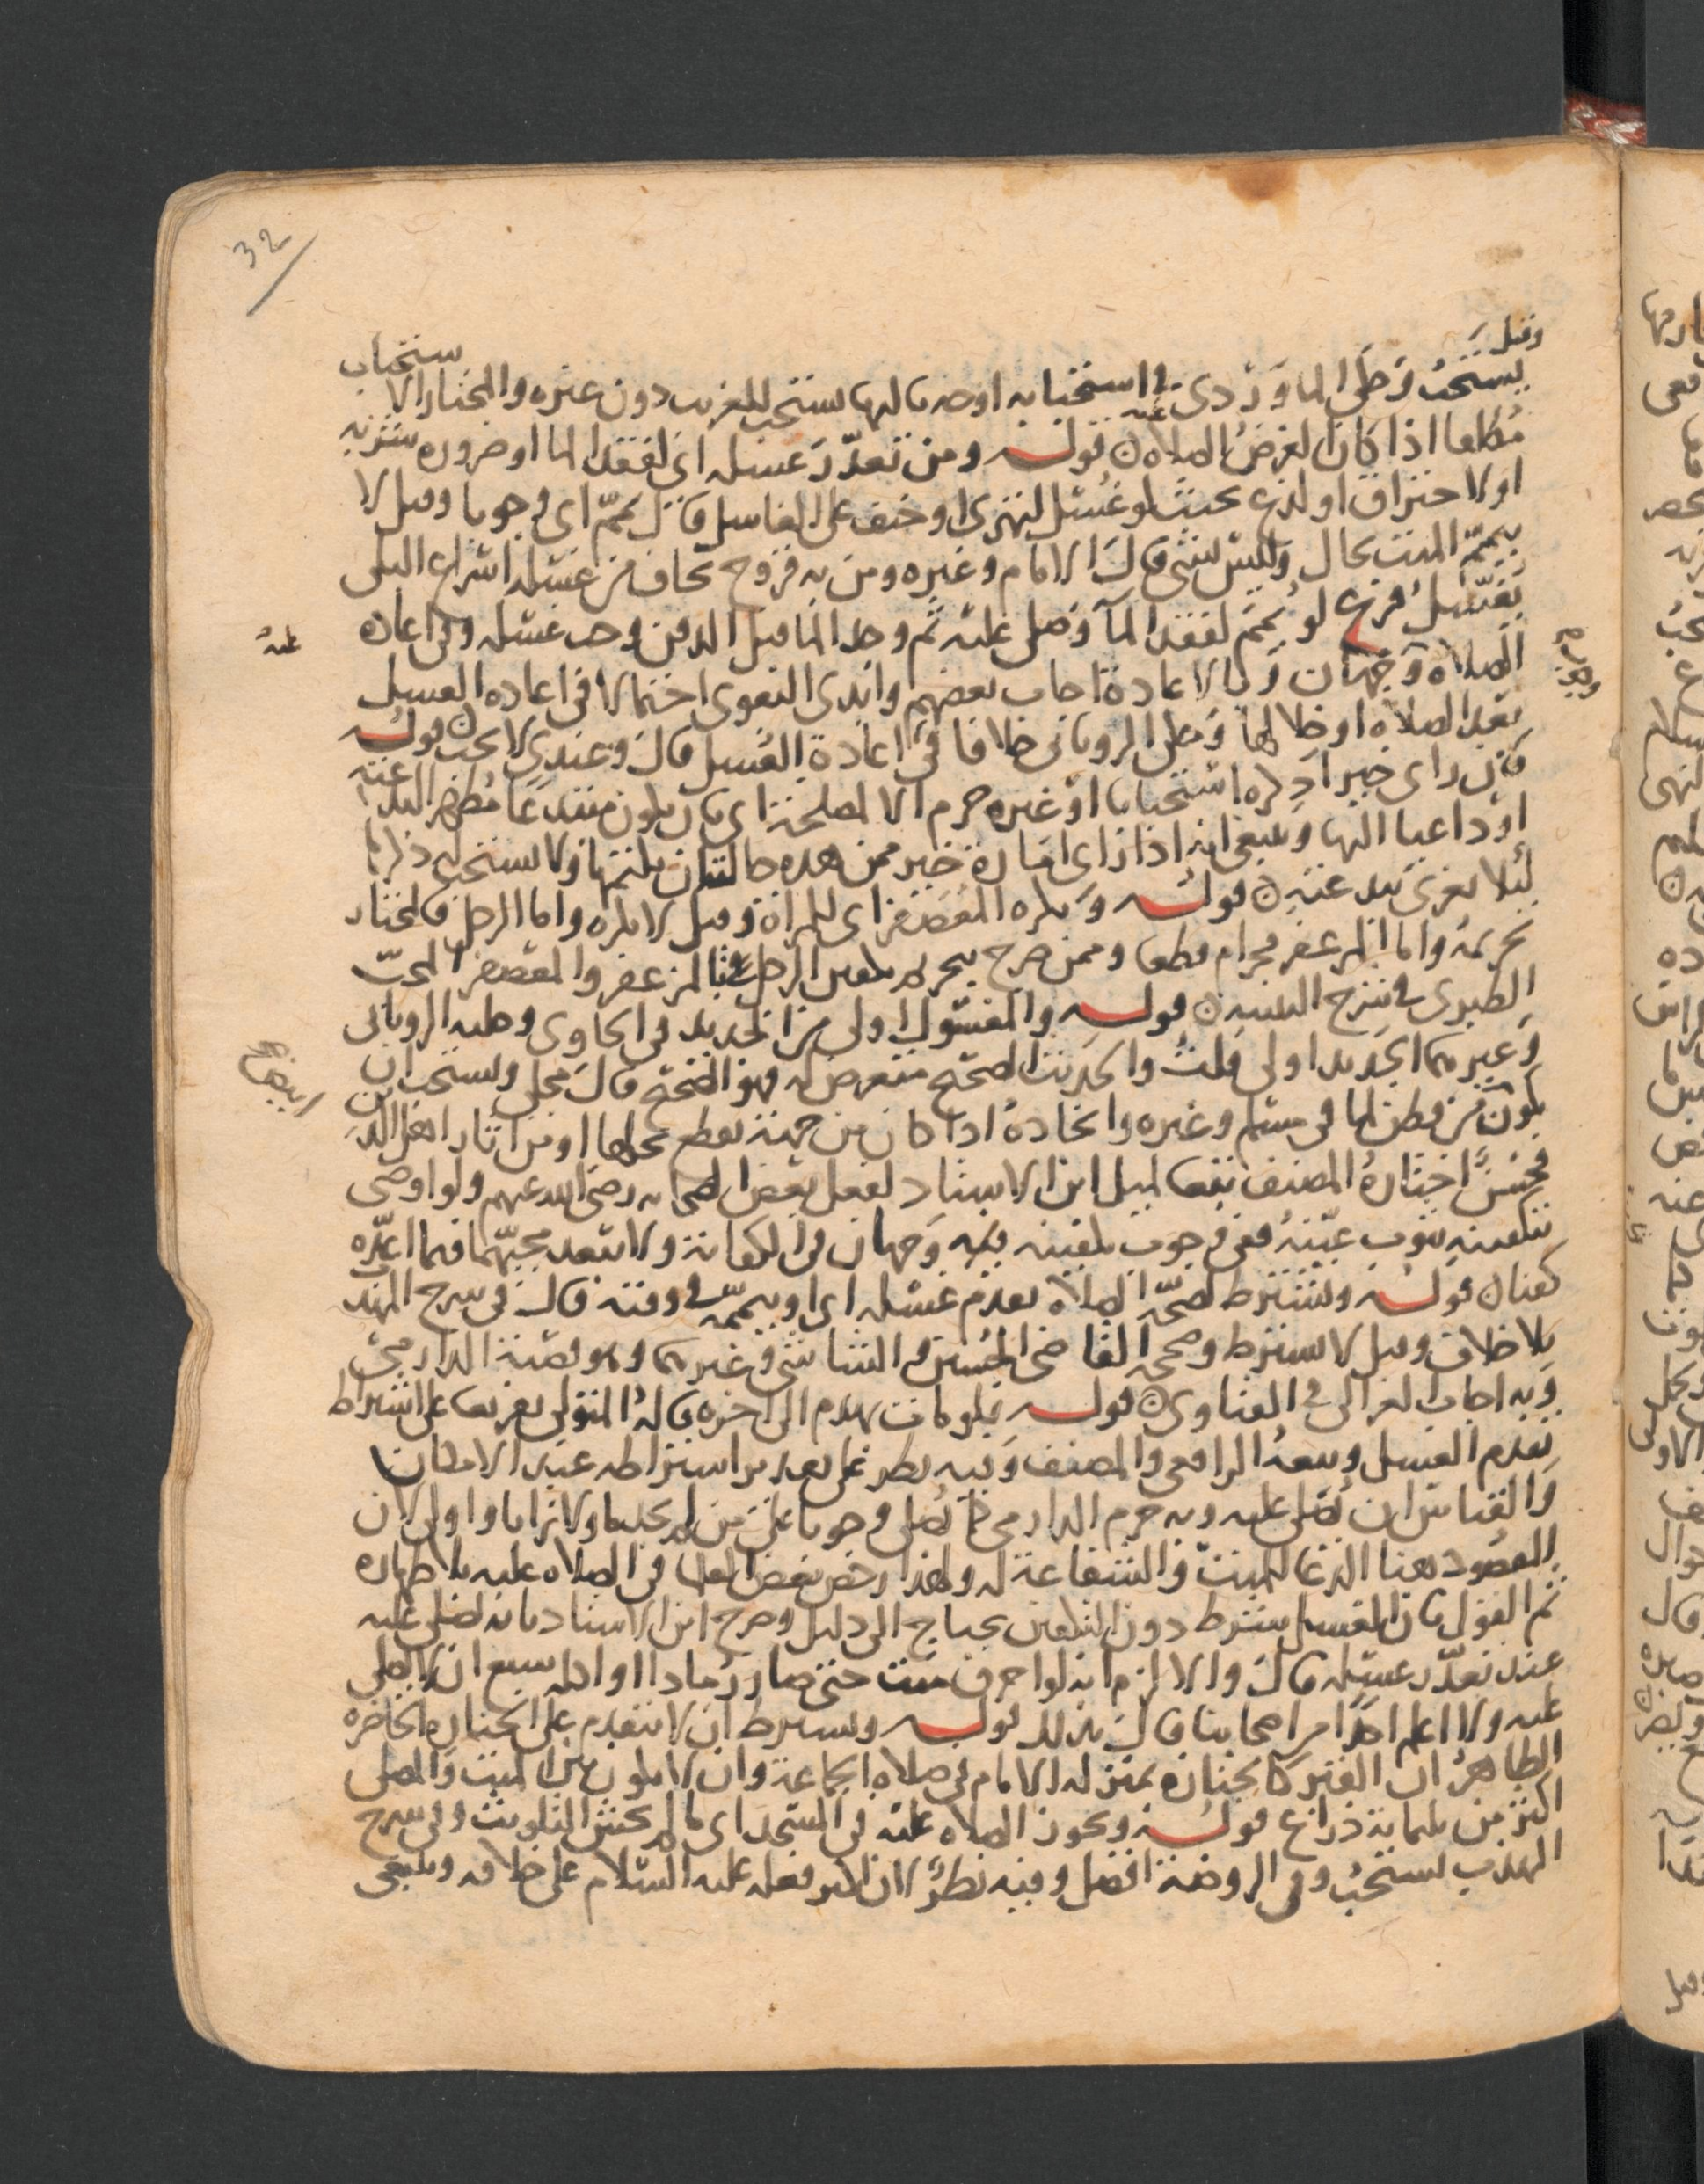 32
وقيل
يستحب وحكى الماوردي في استحبابه اوجه ثالثها يستحب للقريب دون غيره والمختار الاستحباب
مطلقا اذا كان لغرض الصلاة ن قوله ومن تعذر غسله اي لفقد الما او ضرورة
او لاحتراق او لدغ بحيث لو غسل لتهرى او خيف على الغاسل قال يمم اي وجوبا وقيل لا
ييمم الميت بحال وليس بشي قال الامام وغيره ومن به قروح يخاف من غسله اسراع البلى
يغسل فرع لو يمم لفقد الما وصلى عليه ثم وجد الما قبل الدفن وجب غسله وفي اعادة
الصلاه وجهان وبالاعادة اجاب بعضهم وابدى البغوى احتمالا في اعاده الغسل
بعد الصلاه او خلالها وحكى الروياني خلافا في اعادة الغسل قال وعندي لا يجب ن قوله
فان راى خيرا ذكره استحبابا او غيره حرم الا لمصلحة اي بان يكون مبتدعا مظهر البدعته
او داعيا اليها وينبغي انه اذا راى امارة خير ممن هذه حالته ان يكتمها ولا يستحب له ذكرها
ليلا يغرى ببدعته ن قوله ويكره المعصفر اي للمراة وقيل لا يكره واما الرجل فالمختار
تحريمه واما المزعفر فحرام قطعا وممن صرح بتحريم تكفين الرجل في المزعفر والمعصفر المحب
الطبرى في شرح التنبيه ن قوله والمغسول اولى من الجديد في الحاوى وحكيه الروياني
وغيرهما الجديد اولى قلت والحديث الصحيح متعرض له فهو الصحيح قال مجلي ويستحب ان
يكون من قطن لما في مسلم وغيره واتخاده اذا كان من جهة يقطع بحلها او من اثار اهل الدين
فحسن اختاره المصنف تبعا لميل ابن الاستاد لفعل بعض الصحابه رضي الله عنهم ولو اوصى
بتكفينه بثوب عينه ففي وجوب تكفينه فيه وجهان في الكفاية ولا يبعد مجيهما فيما اعده
كفنا ن قوله ويشترط لصحة الصلاه تقدم غسله اي او تيممه في وقته قال في شرح المهذب
بلا خلاف وقيل لا يشترط وصححه القاضي الحسين والشاشي وغيرهما وهو قضية الدارمي
وبه اجاب الغزالى في الفتاوى ن قوله فلو مات بهدم الى اخره قاله المتولي تفريعا على اشتراط
تقدم الغسل وتبعه الرافعي والمصنف وفيه نظر على تقدير اشتراطه عند الامكان
والقياس ان يصلى عليه وبه جزم الدارمي كما يصلي وجوبا على من لم يجد ما ولا ترابا واولى لان
المقصود هنا الدعا للميت والشفاعة له ولهذا رخص بعض العلما في الصلاه عليه بلا طهاره
ثم القول بان الغسل شرط دون التكفين يحتاج الى دليل وصرح ابن الاستاد بانه يصلى عليه
عند تعذر غسله قال والا لزم انه لو احرق ميت حتى صار رمادا او اكله سبع ان لا يصلى
عليه ولا اعلم احدا من اصحابنا قال بذلك قوله ويشترط ان لا يتقدم على الجنازه الحاضره
الظاهر ان القبر كالجنازه بمنزله الامام في صلاه الجماعة وان لا يكون بين الميت والمصلي
اكثر من ثلثماية ذراع قوله وتجوز الصلاه عليه في المسجد اى ما لم يخش التلويث وفي شرح
المهذب يستحب وفي الروضة افضل وفيه نظر لان اكثر فعله عليه السلام على خلافه وينبغي